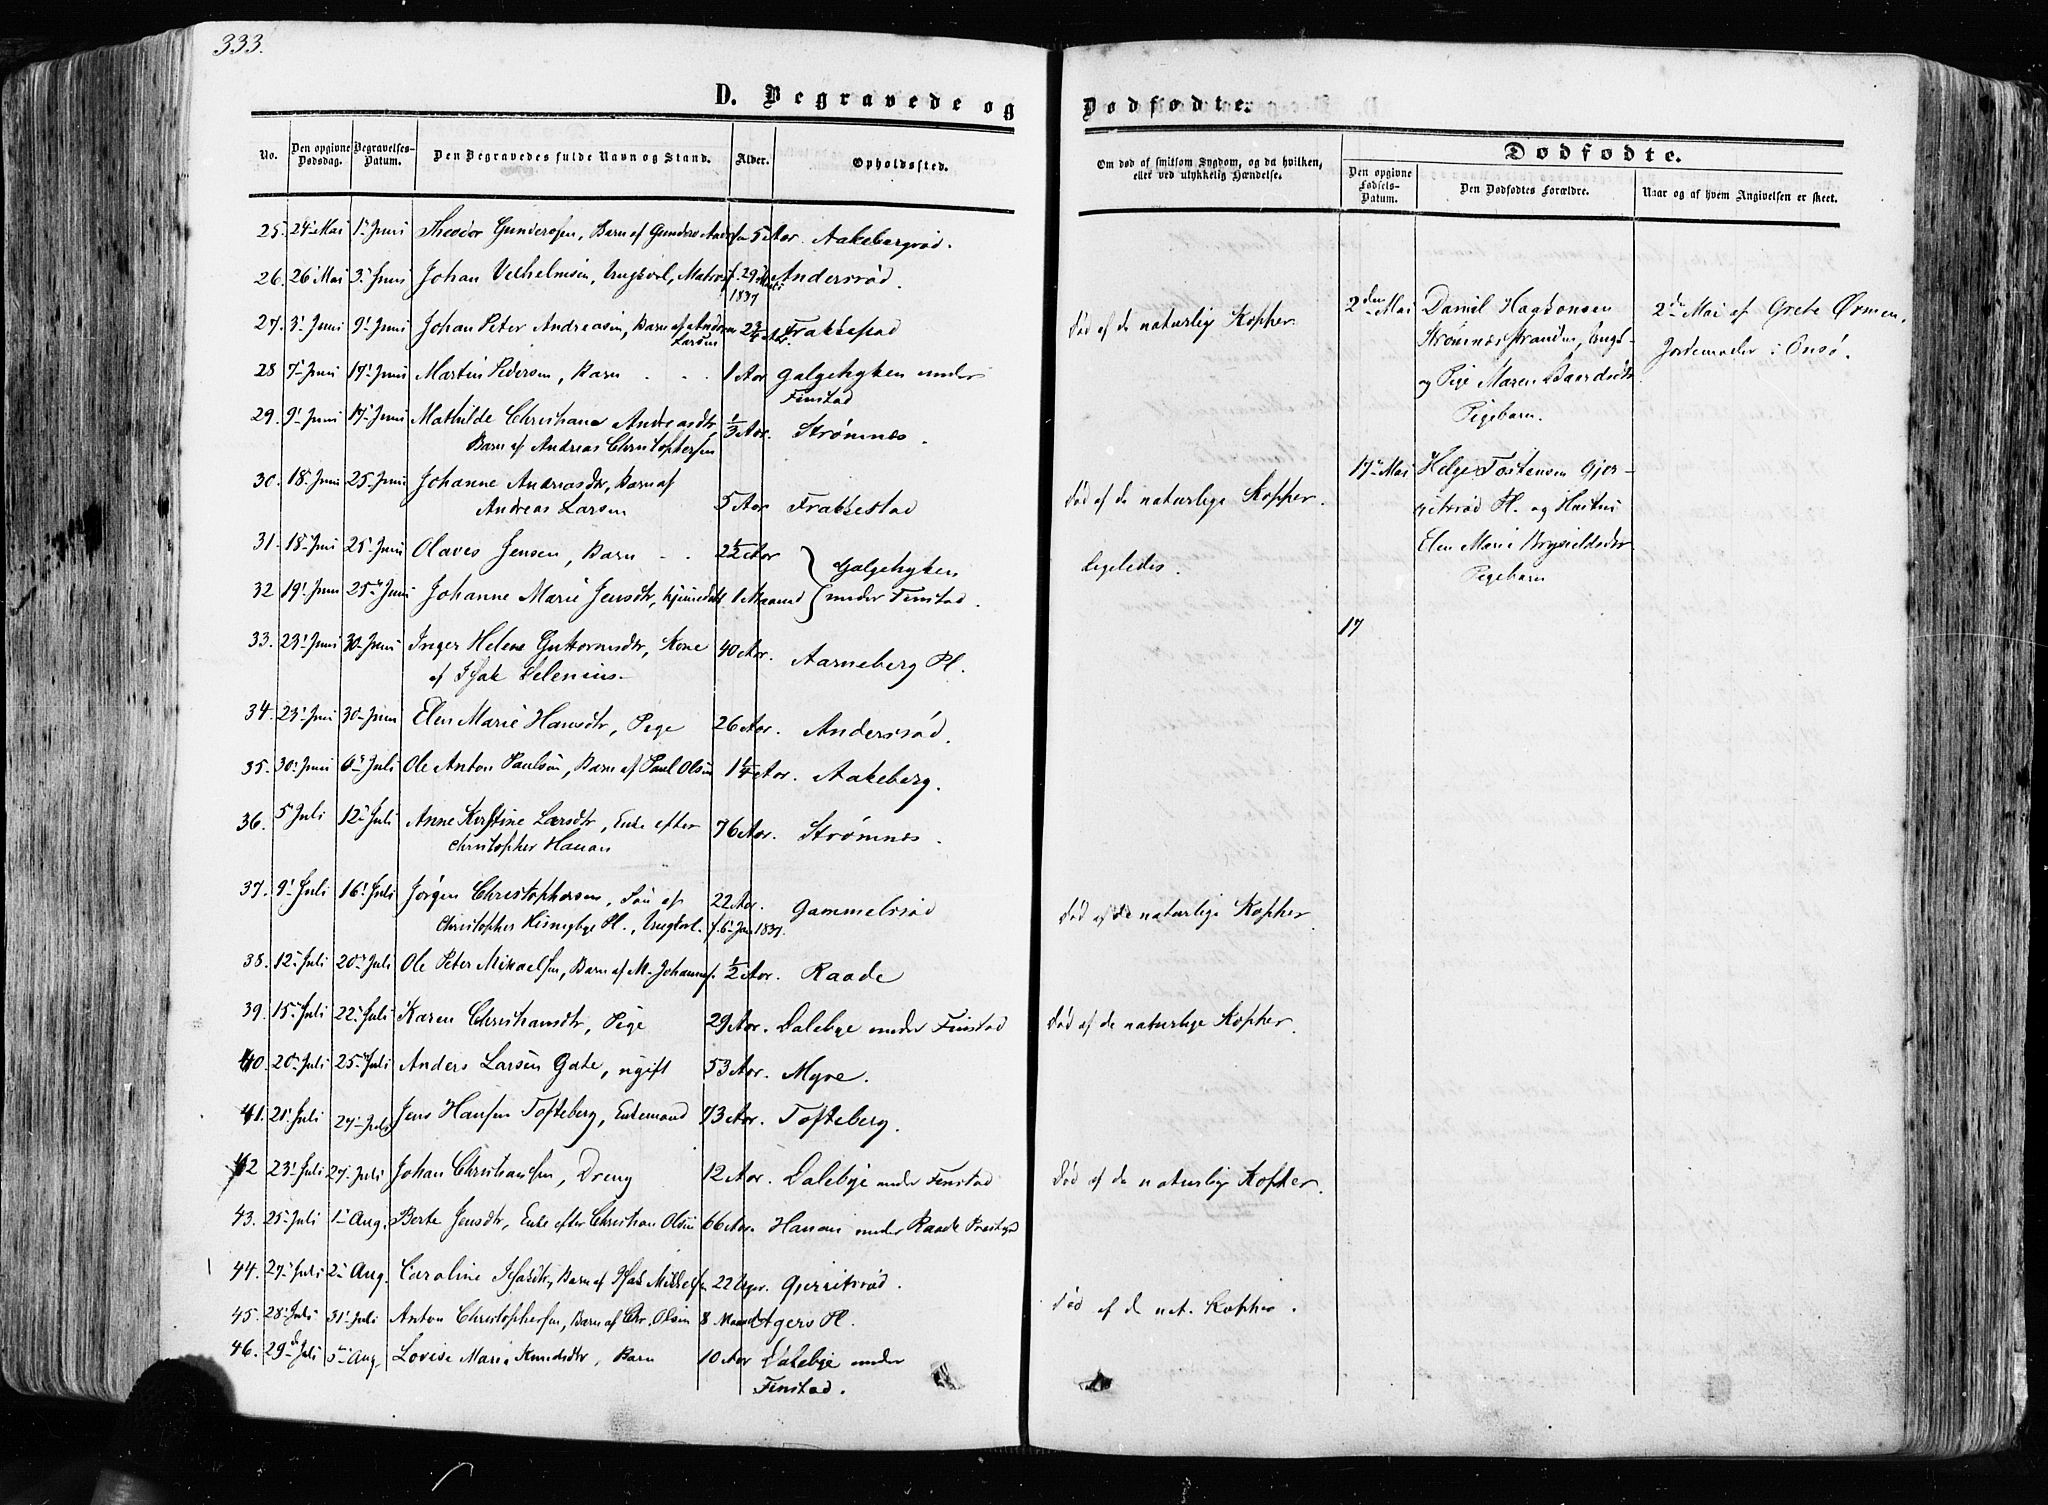 333.
D. Begravede og Dødfødte.
No. Den opgivne Dødsdag. Begravelses-Datum. Den Begravedes fulde Navn og Stand. Alder. Opholdssted.
Om død af smitsom Sygdom, og da hvilken, eller ved ulykkelig Hændelse.
Dødfødte.
Den opgivne Fødsels-Datum. Den Dødfødtes Forældre. Naar og af hvem Angivelsen er skeet.
25. 24 Mai 1 Juni Theodor Gundersen, Barn af Gunder 5 Aar. Aakebergrød.
26. 26 Mai 3 Juni Johan Vilhelmsen, Ungkarl, Matros f. 29 1837 Andersrød.
27. 3 Juni 9 Juni Johan Peter Andreasen, Barn af Andreas Larsen 2 3/4 Ar. Frakkestad
Død af de naturlig Kopper.
28 7 Juni 17 Juni Martin Pedersen, Barn . . 1 Aar Galgehyken under
Finstad
29. 9 Juni 17 Juni Mathilde Christiane Andreasdtr, 1/3 Aar. Strømnes.
Barn af Andreas Christophersen
30. 18 Juni 25 Juni Johanne Andreasdtr, Barn af
Andreas Larsen 5 Aar Frakkestad
Død af de naturlige Kopper.
31. 18 Juni 25 Juni Olaves Jensen, Barn . . 2 1/2 Aar Galgehyken
ligeledes.
32 19 Juni 25 Juni Johanne Marie Jensdtr, hjemmedøbt 1 Maaned under Finstad.
33. 23 Juni 30 Juni Inger Helene Guttormsdtr, Kone 40 Aar. Aarneberg Pl.
af Isak Helenius
34. 23 Juni 30 Juni Elen Marie Hansdtr, Pige 26 Aar. Andersrød.
35. 30 Juni 6 Juli Ole Anton Paulsen, Barn af Paul Olsen 1 1/4 Aar. Aakeberg.
36. 5 Juli 12 Juli Anne Kirstine Larsdtr, Enke efter 76 Aar. Strømnes.
Christopher Hanan
37. 9 Juli 16 Juli Jørgen Christophersen, Søn af 22 Aar. Gammelsrød
Christopher Pl., Ungkarl. f. 6 Jan 1837.
Død af de naturlige Kopper.
38. 12 Juli 20 Juli Ole Peter Mikaelsen, Barn af M. Johannes. 1/2 Aar. Raade
39. 15 Juli 22 Juli Karen Christiansdtr, Pige 29 Aar. Dalebye under Finstad
Død af de naturlige Kopper.
40 20 Juli 25 Juli Anders Larsen Gate, ugift 53 Aar. Myre.
41. 21 Juli 27 Juli Jens Hansen Tofteberg, Enkemand 73 Aar. Tofteberg.
42 23 Juli 27 Juli Johan Christiansen, Dreng 12 Aar. Dalebye under Finstad
Død af de naturlige Kopper.
43. 25 Juli 1 Aug. Berte Jensdtr, Enke efter Christian Olsen 66 Aar. Hanan under Raade Prestegd
44. 27 Juli 2 Aug. Caroline Isaksdtr, Barn af Isak Mikkelsen 22 Uger. Gjerritsrød.
45. 28 Juli 31 Juli Anton Christophersen, Barn af Chr. Olsen 8 Maaned Agers Pl.
Død af de nat. Kopper.
46. 29 Juli 5 Aug Lovise Marie Knudsdtr, Barn 10 Aar Dalebye under
Finstad.
2den Mai Daniel Haagdonsen
Strømnesstranden, Ungk.
og Pige Maren Baardsdtr
Pigebarn.
2d Mai af Grete Ørmen,
Jordemoder i Onsø.
17 Mai Helge Tostensen Gjer-
ritsrød Pl. og Hustru
Elen Marie Brynildsdtr
Pigebarn
17